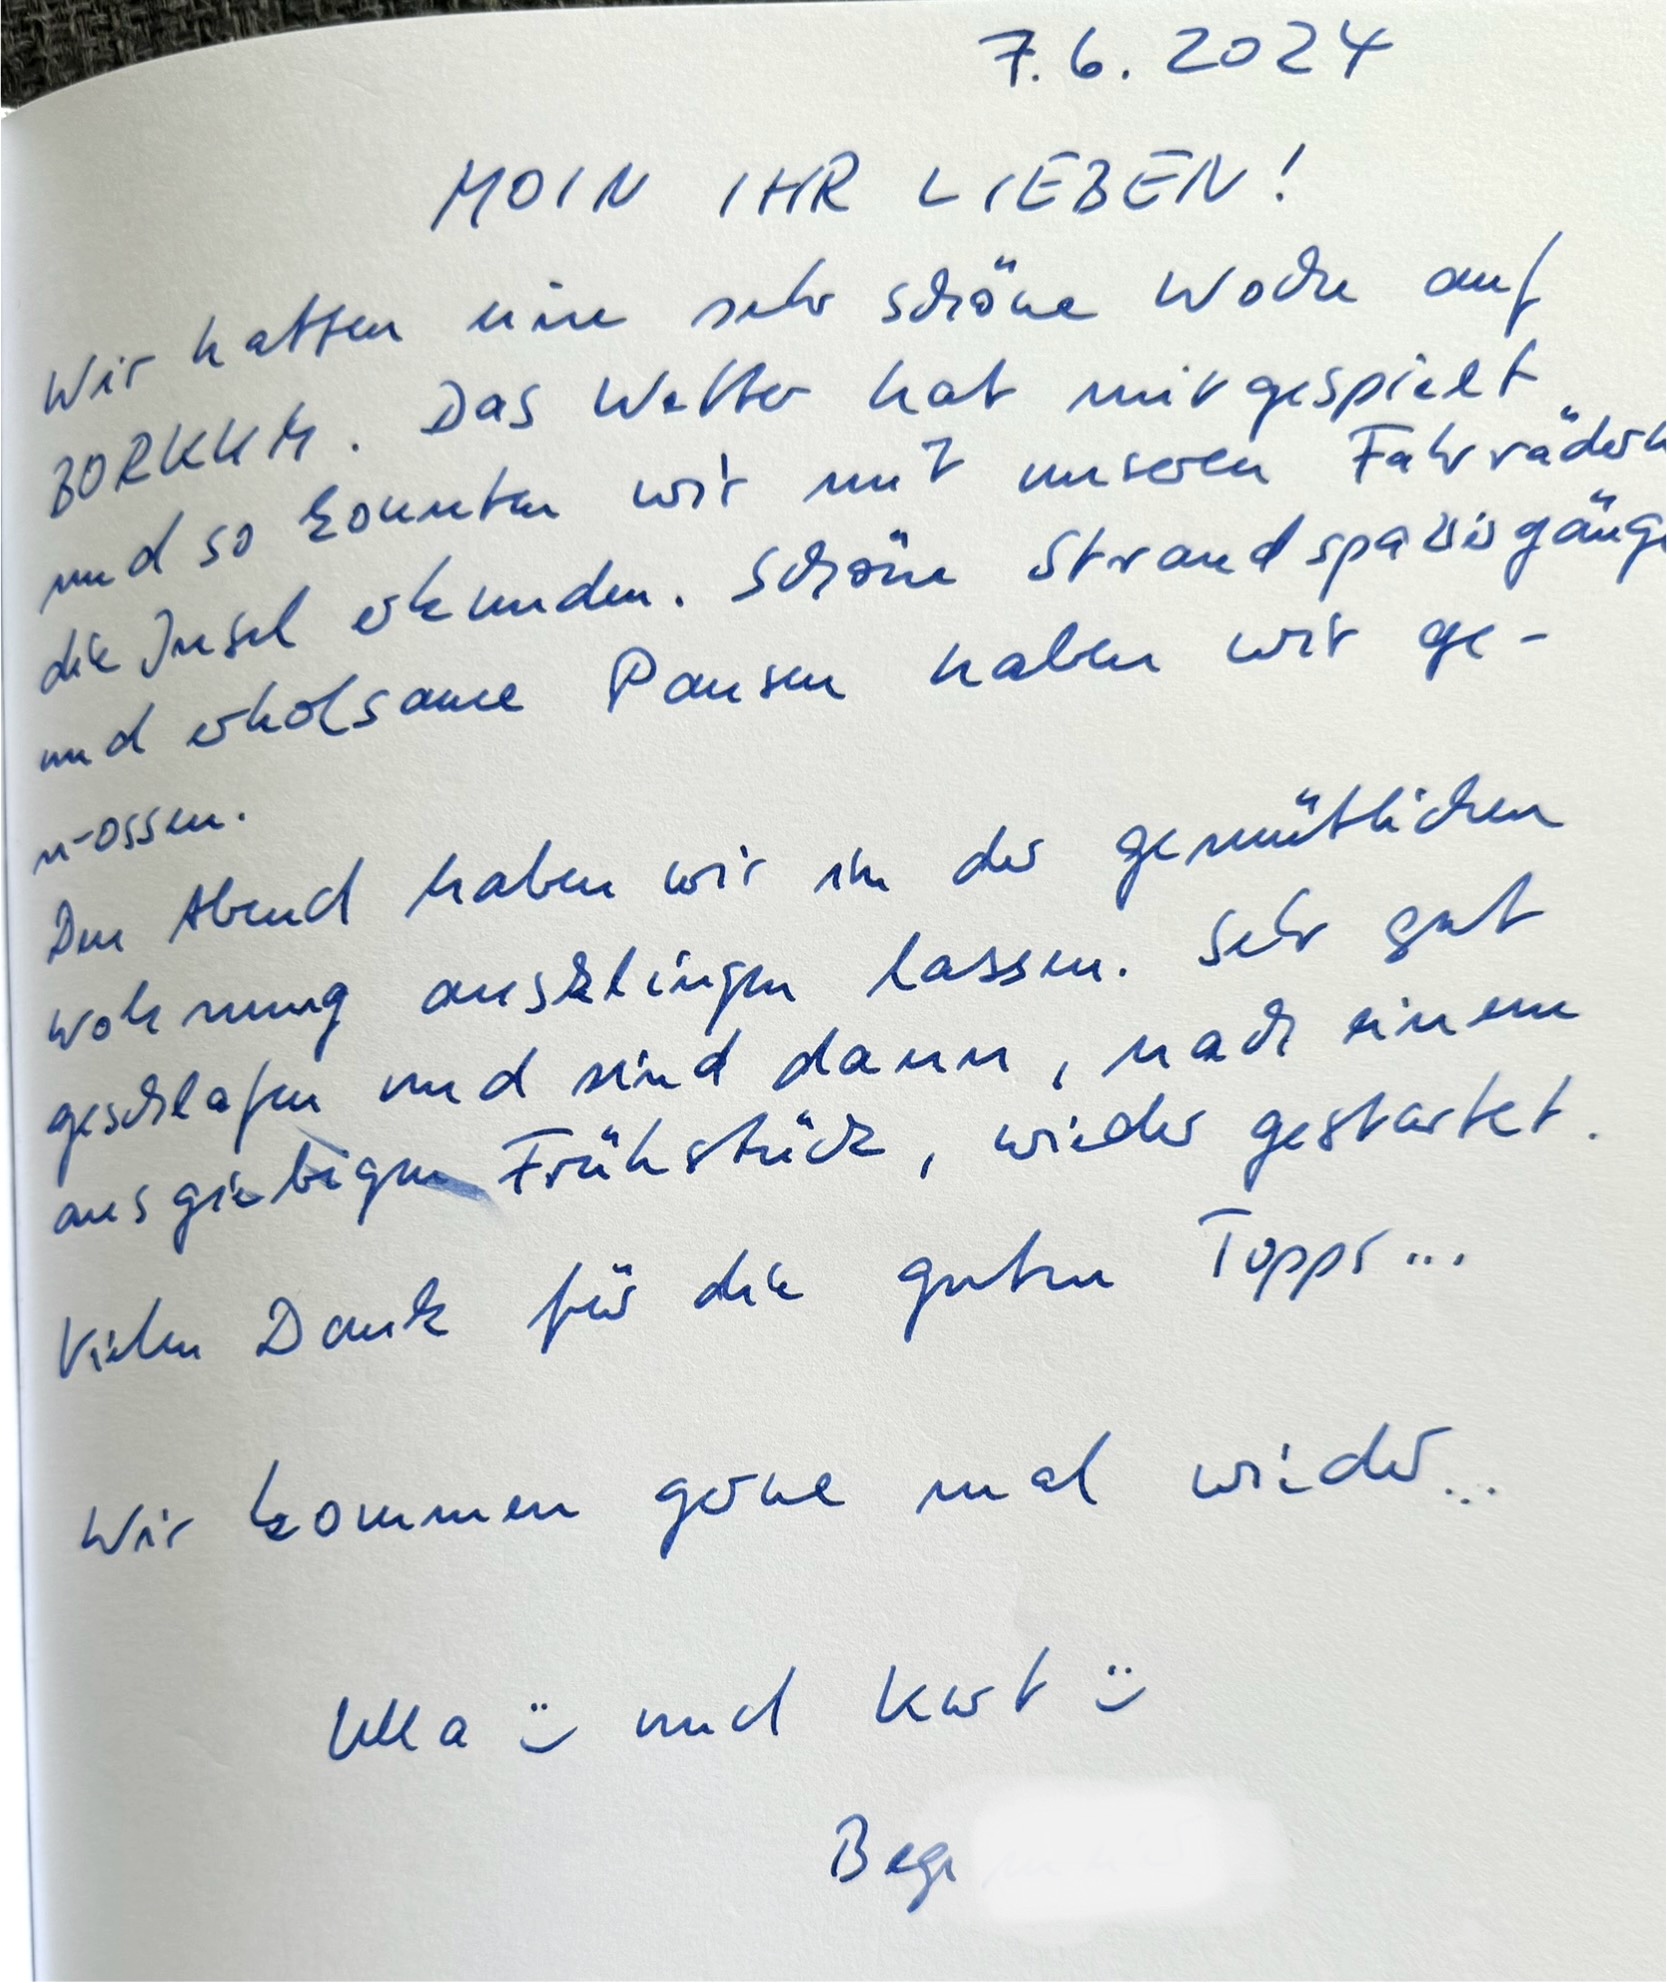 7.6.2024
MOIN IHR LIEBEN!
Wir hatten eine sehr schöne Woche auf
BORKUM. Das Wetter hat mitgespielt
und so konnten wir mit unseren Fahrrädern
die Insel erkunden. Schöne Strandspaziergänge
und erholsame Pausen haben wir ge-
nossen.
Den Abend haben wir in der gemütlichen
Wohnung ausklingen lassen. Sehr gut
geschlafen und sind dann, nach einem
ausgiebigen Frühstück, wieder gestartet.
Vielen Dank für die guten Topps...
Wir kommen gerne mal wieder...
Ulla :) und Kurt :)